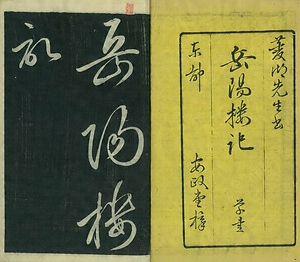 菱湖先生書
岳陽樓記
全壹
東都
安政堂梓
岳陽樓
記